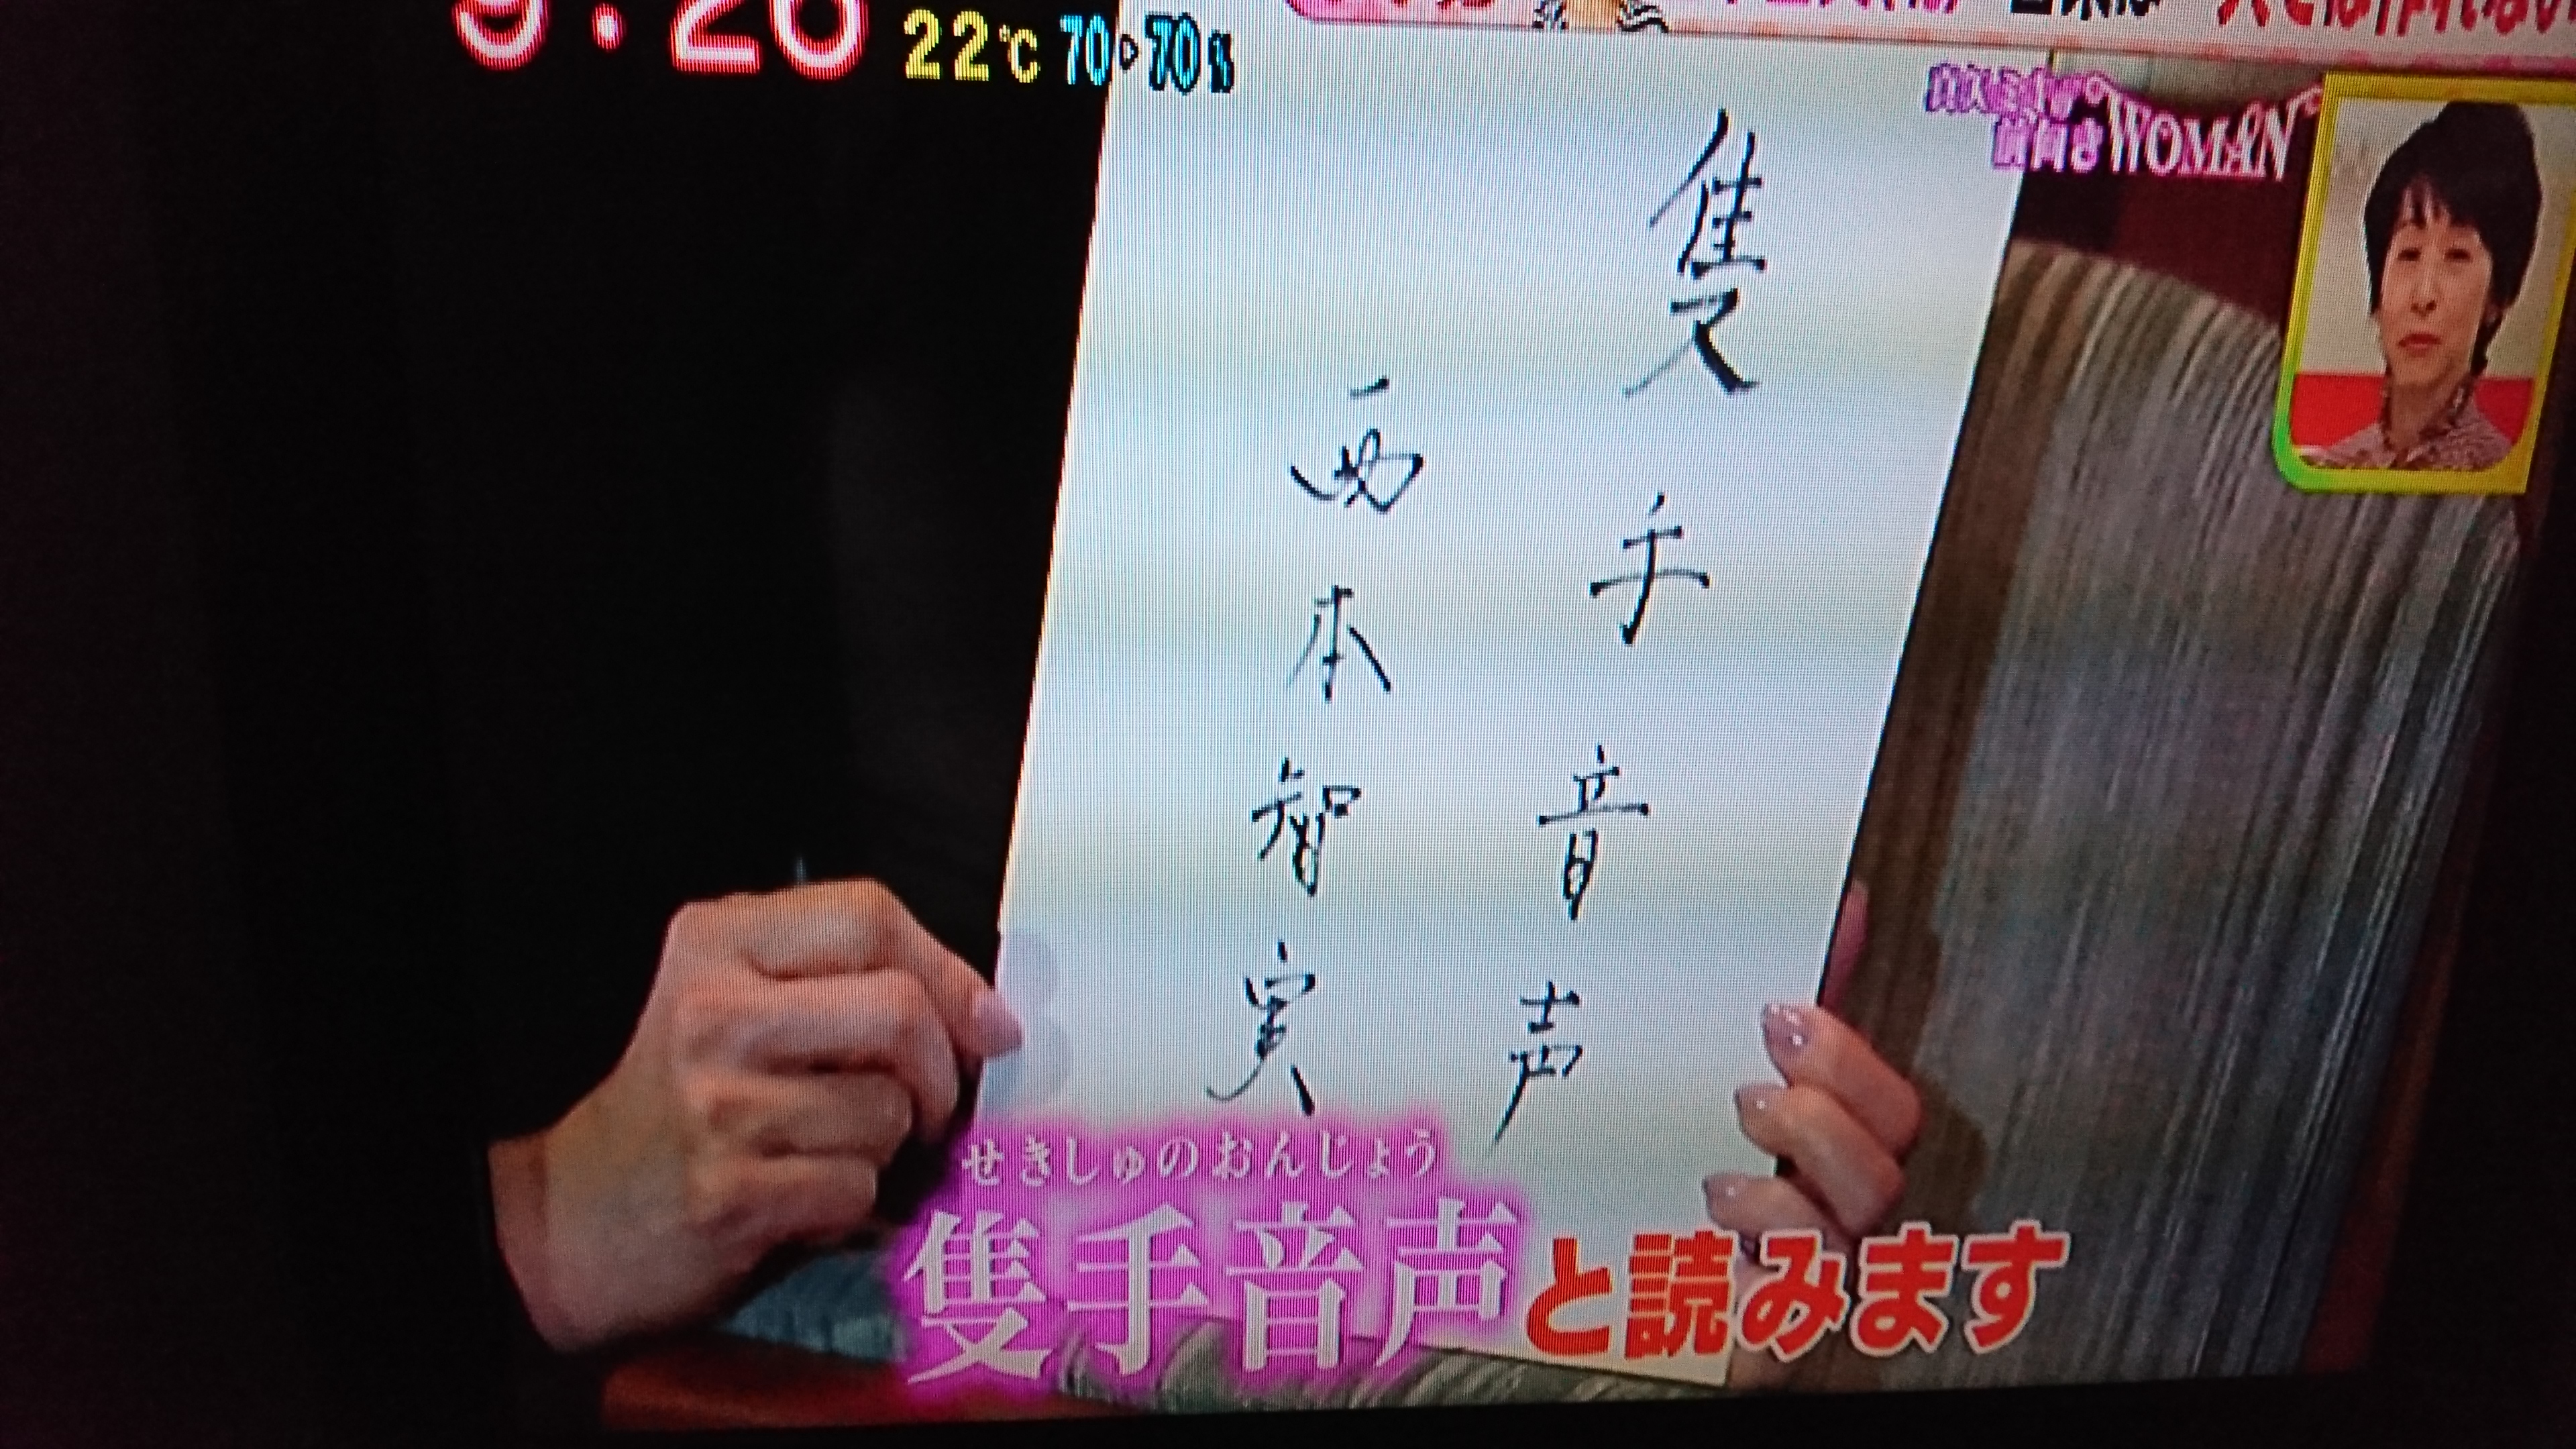 9:26 22℃ 70▷70%
前向きWOMAN
隻手音声
西本智実
せきしゅのおんじょう
隻手音声と読みます